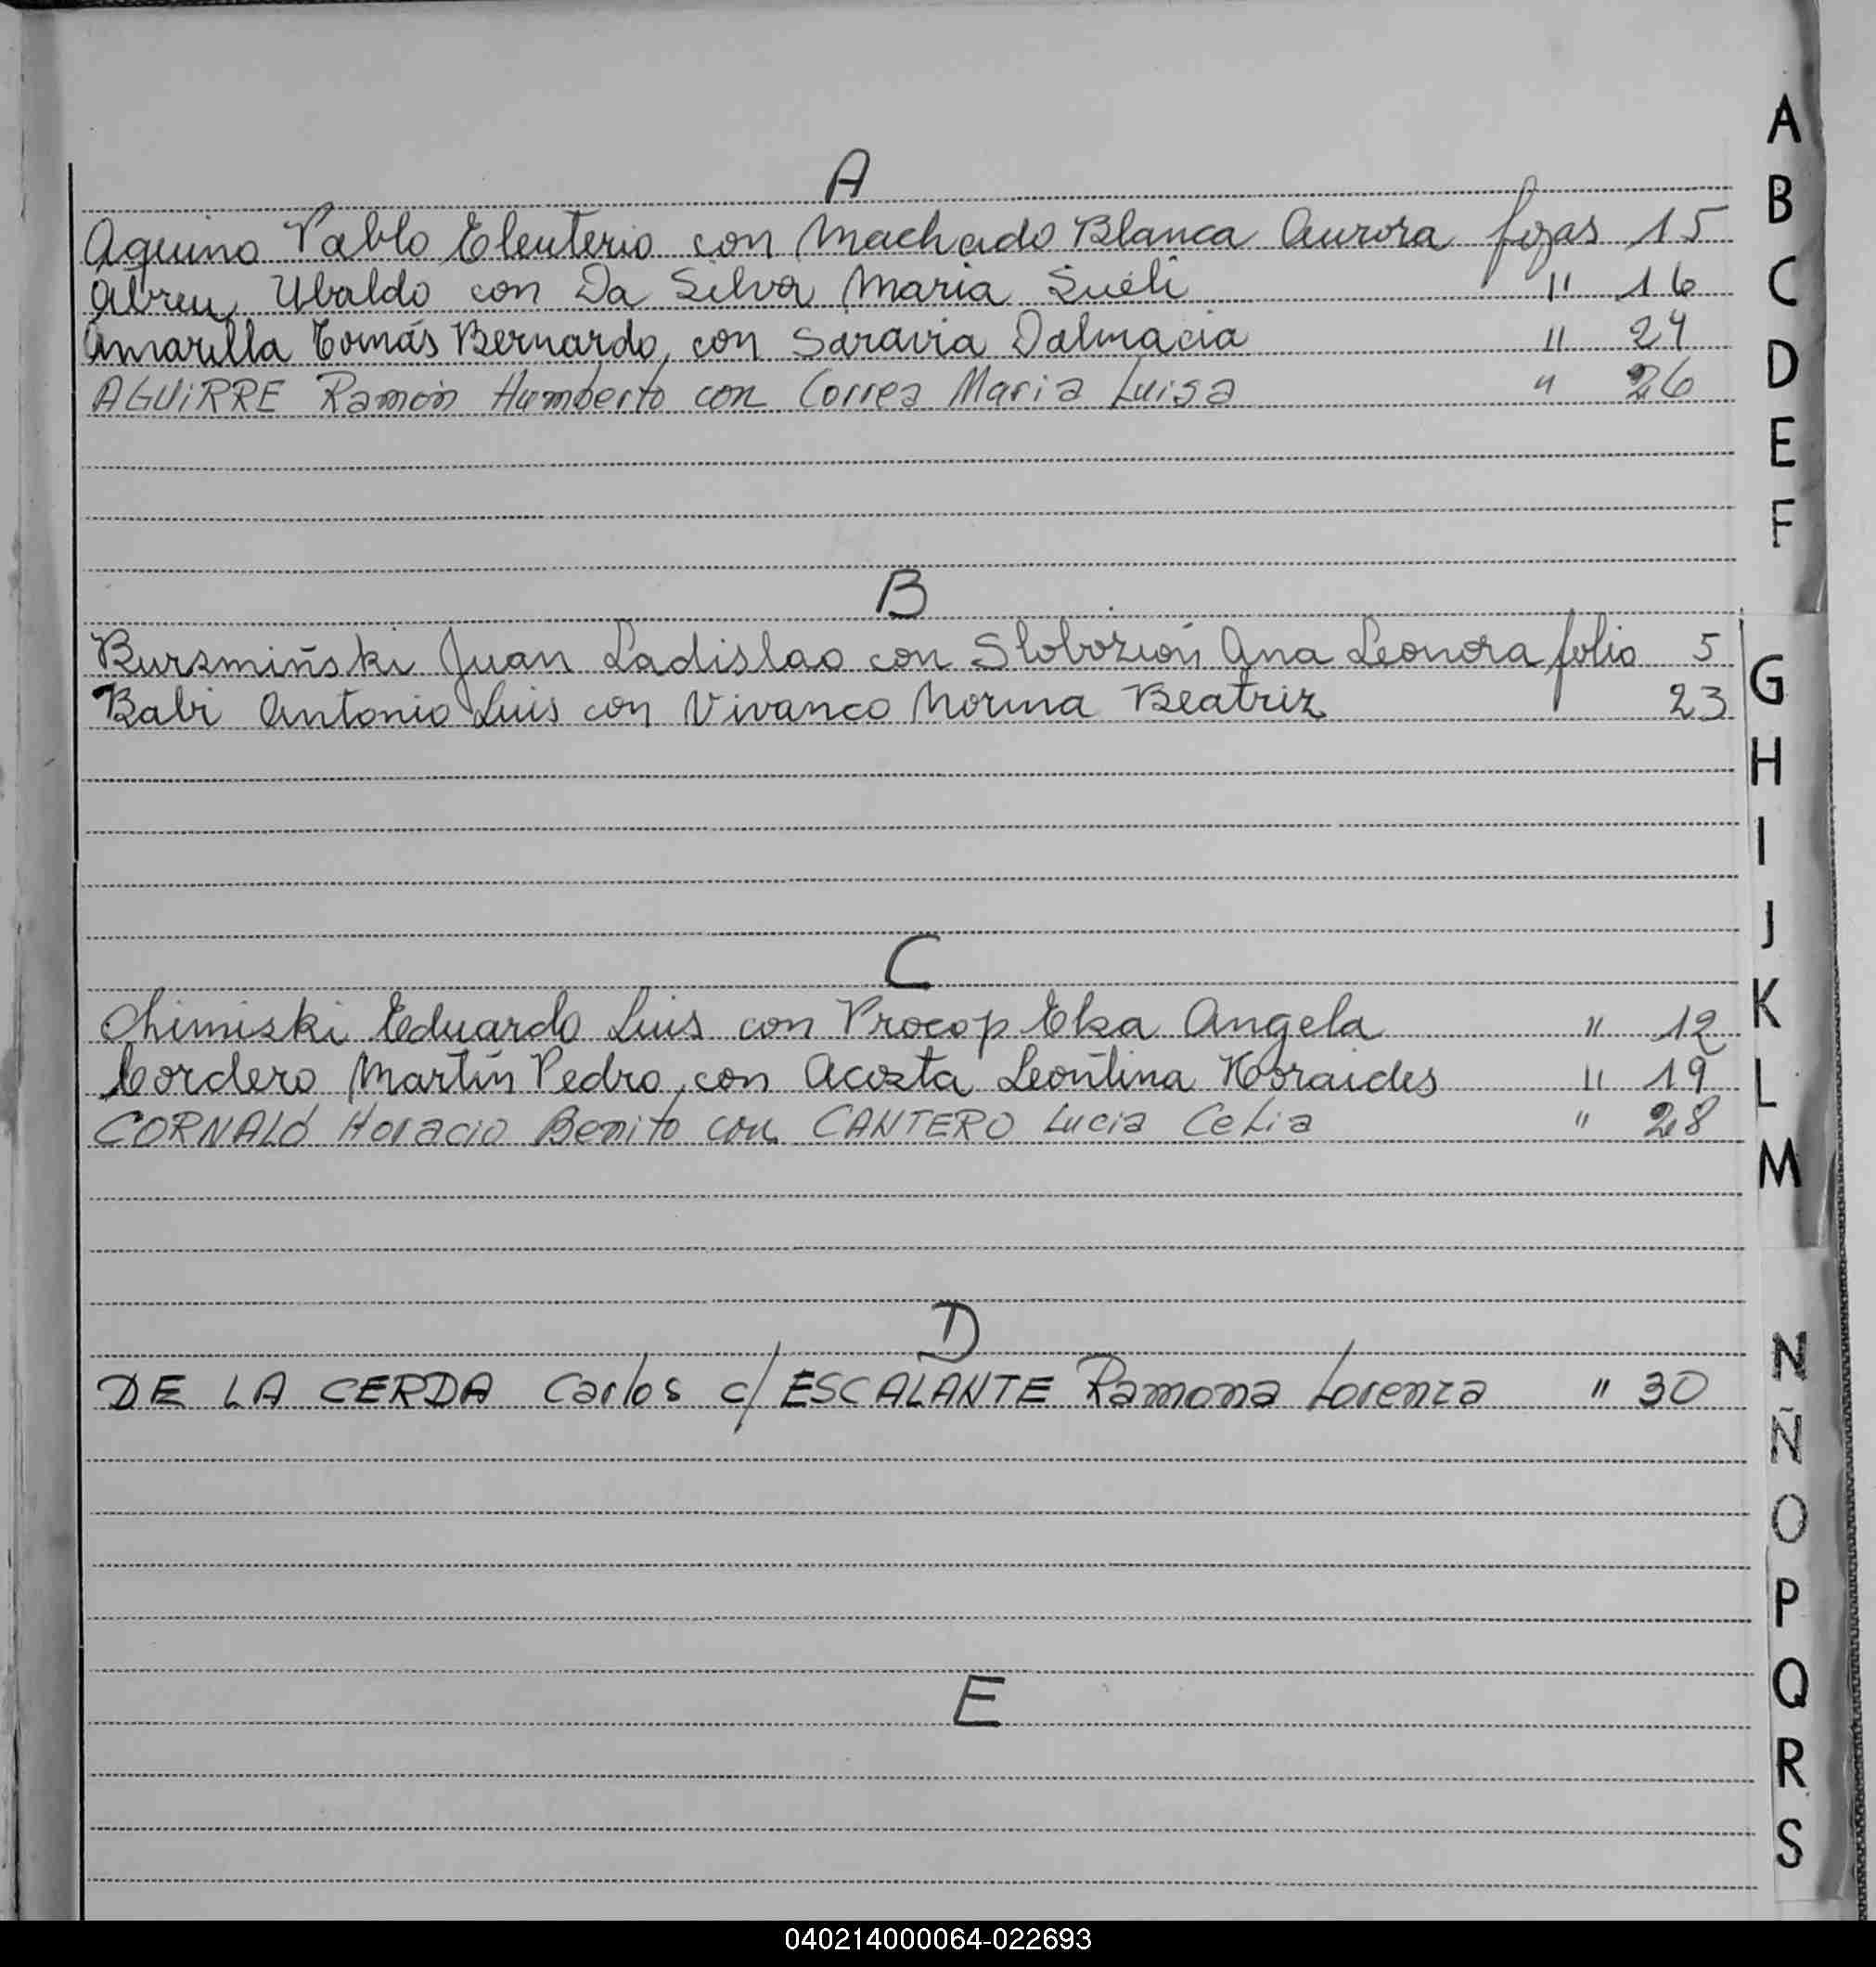 A
Aquino Pablo Eleuterio con Machado Blanca Aurora fojas 15
Abreu, Ubaldo con Da Silva Maria Sueli " 16
Amarilla Tomás Bernardo, con Saravia Dalmacia " 24
AGUIRRE Ramón Humberto con Correa Maria Luisa " 26
B
Burzmiñski Juan Ladislao con Slobozión Ana Leonora folio 5
Babi Antonio Luis con Vivanco Norma Beatriz 23
C
Chimiski Eduardo Luis con Procop Elsa Angela " 12
Cordero Martín Pedro, con Acosta Leontina " 19
CORNALÓ Horacio Benito con CANTERO Lucia Celia " 28
D
DE LA CERDA Carlos c/ ESCALANTE Ramona Lorenza " 30
E
A
B
C
D
E
F
G
H
I
J
K
L
M
N
Ñ
O
P
Q
R
S
040214000064-022693